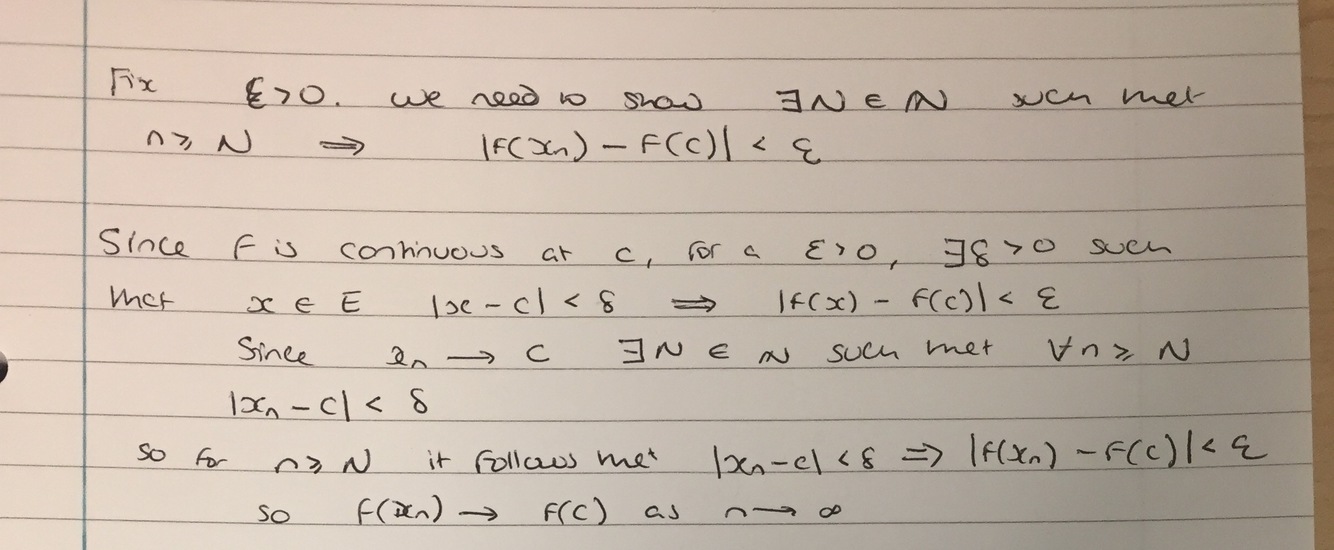 Fix ε>0. we need to show ∃N ∈ ℕ such that
n ≥ N ⟹ |f(xₙ) − f(c)| < ε
Since f is continuous at c, for a ε>0, ∃δ>0 such
that x ∈ E |x − c| < δ ⟹ |f(x) − f(c)| < ε
Since xₙ → c ∃N ∈ ℕ such that ∀n ≥ N
|xₙ − c| < δ
so for n ≥ N it follows that |xₙ − c| < δ ⟹ |f(xₙ) − f(c)| < ε
so f(xₙ) → f(c) as n → ∞